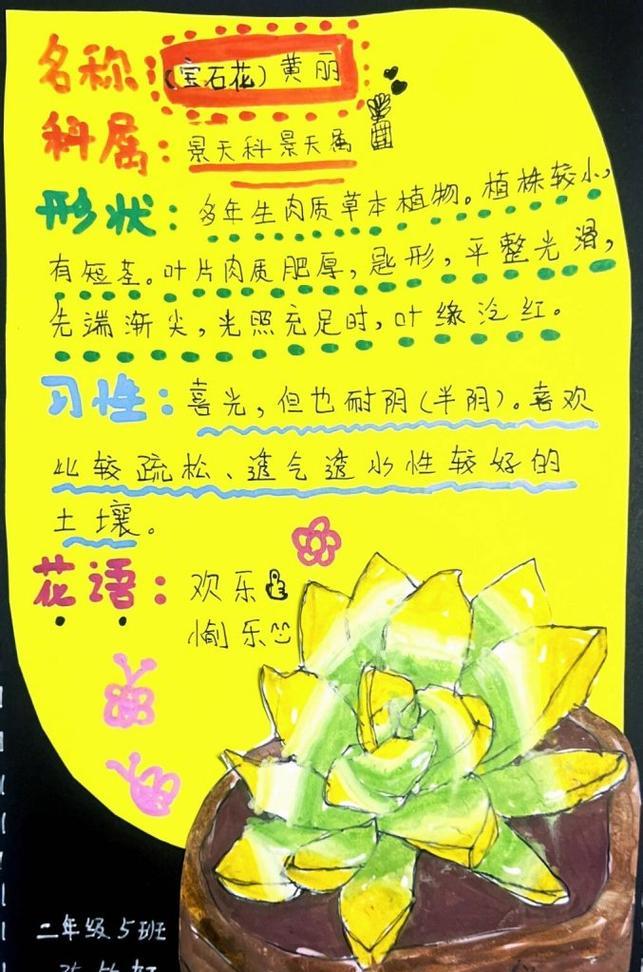 名称：(宝石花)黄丽
科属：景天科景天属
形状：多年生肉质草本植物。植株较小，
有短茎。叶片肉质肥厚，匙形，平整光滑，
先端渐尖，光照充足时，叶缘泛红。
习性：喜光，但也耐阴(半阴)。喜欢
比较疏松、透气透水性较好的
土壤。
花语：欢乐
愉乐
二年级5班